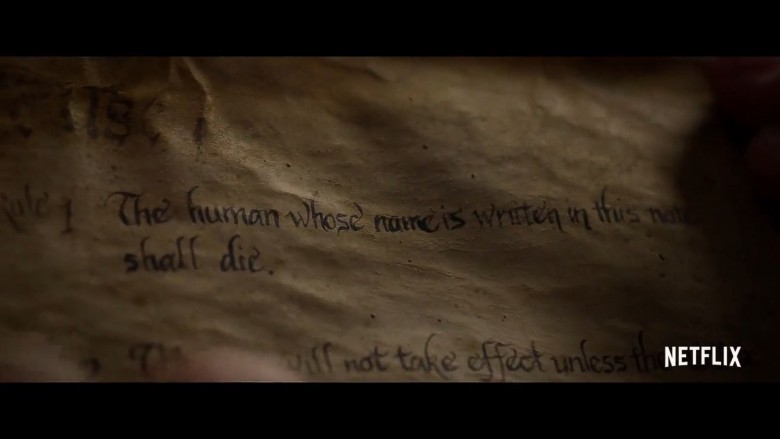 Rule 1 The human whose name is written in this note
shall die.
will not take effect unless the
NETFLIX